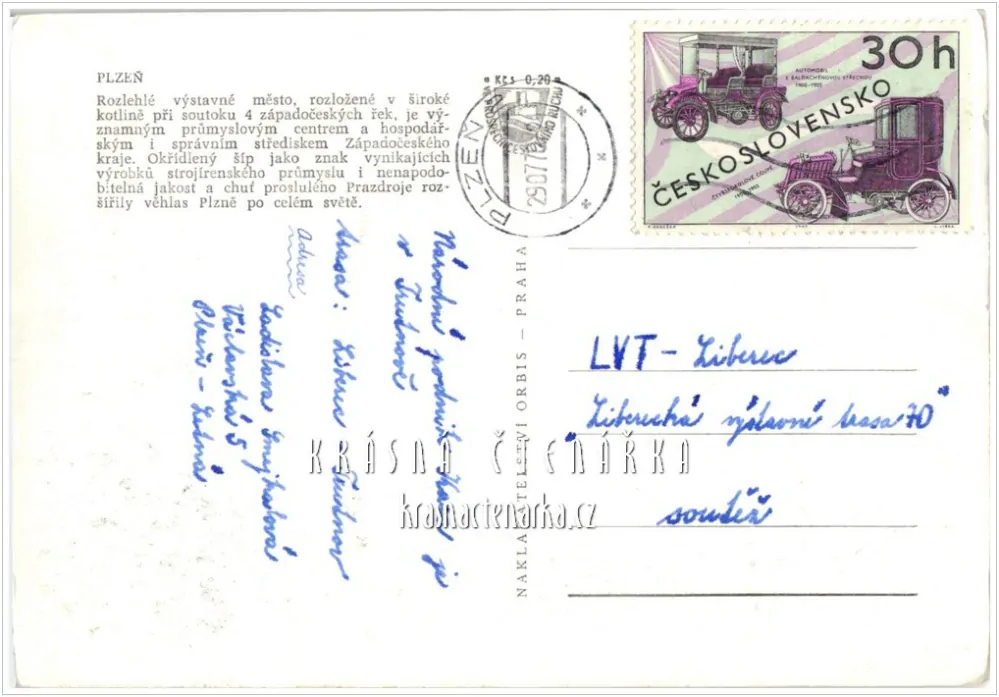 PLZEŇ
Rozlehlé výstavné město, rozložené v široké
kotlině při soutoku 4 západočeských řek, je vý-
znamným průmyslovým centrem a hospodář-
ským i správním střediskem Západočeského
kraje. Okřídlený šíp jako znak vynikajících
výrobků strojírenského průmyslu i nenapodo-
bitelná jakost a chuť proslulého Prazdroje roz-
šířily věhlas Plzně po celém světě.
Národní podnik Kara je
v Trutnově
trasa: Liberec - Trutnov
Adresa
Ladislava
Václavská 5
Plzeň - Letná
NAKLADATELSTVÍ ORBIS — PRAHA
Kčs 0,20
PLZEŇ
29.07.7
30h
ČESKOSLOVENSKO
AUTOMOBIL
S BALDACHÝNOVOU STŘECHOU
1900-1905
LVT - Liberec
„Liberecká výstavní trasa 70"
soutěž
KRÁSNÁ ČTENÁŘKA
krasnactenarka.cz